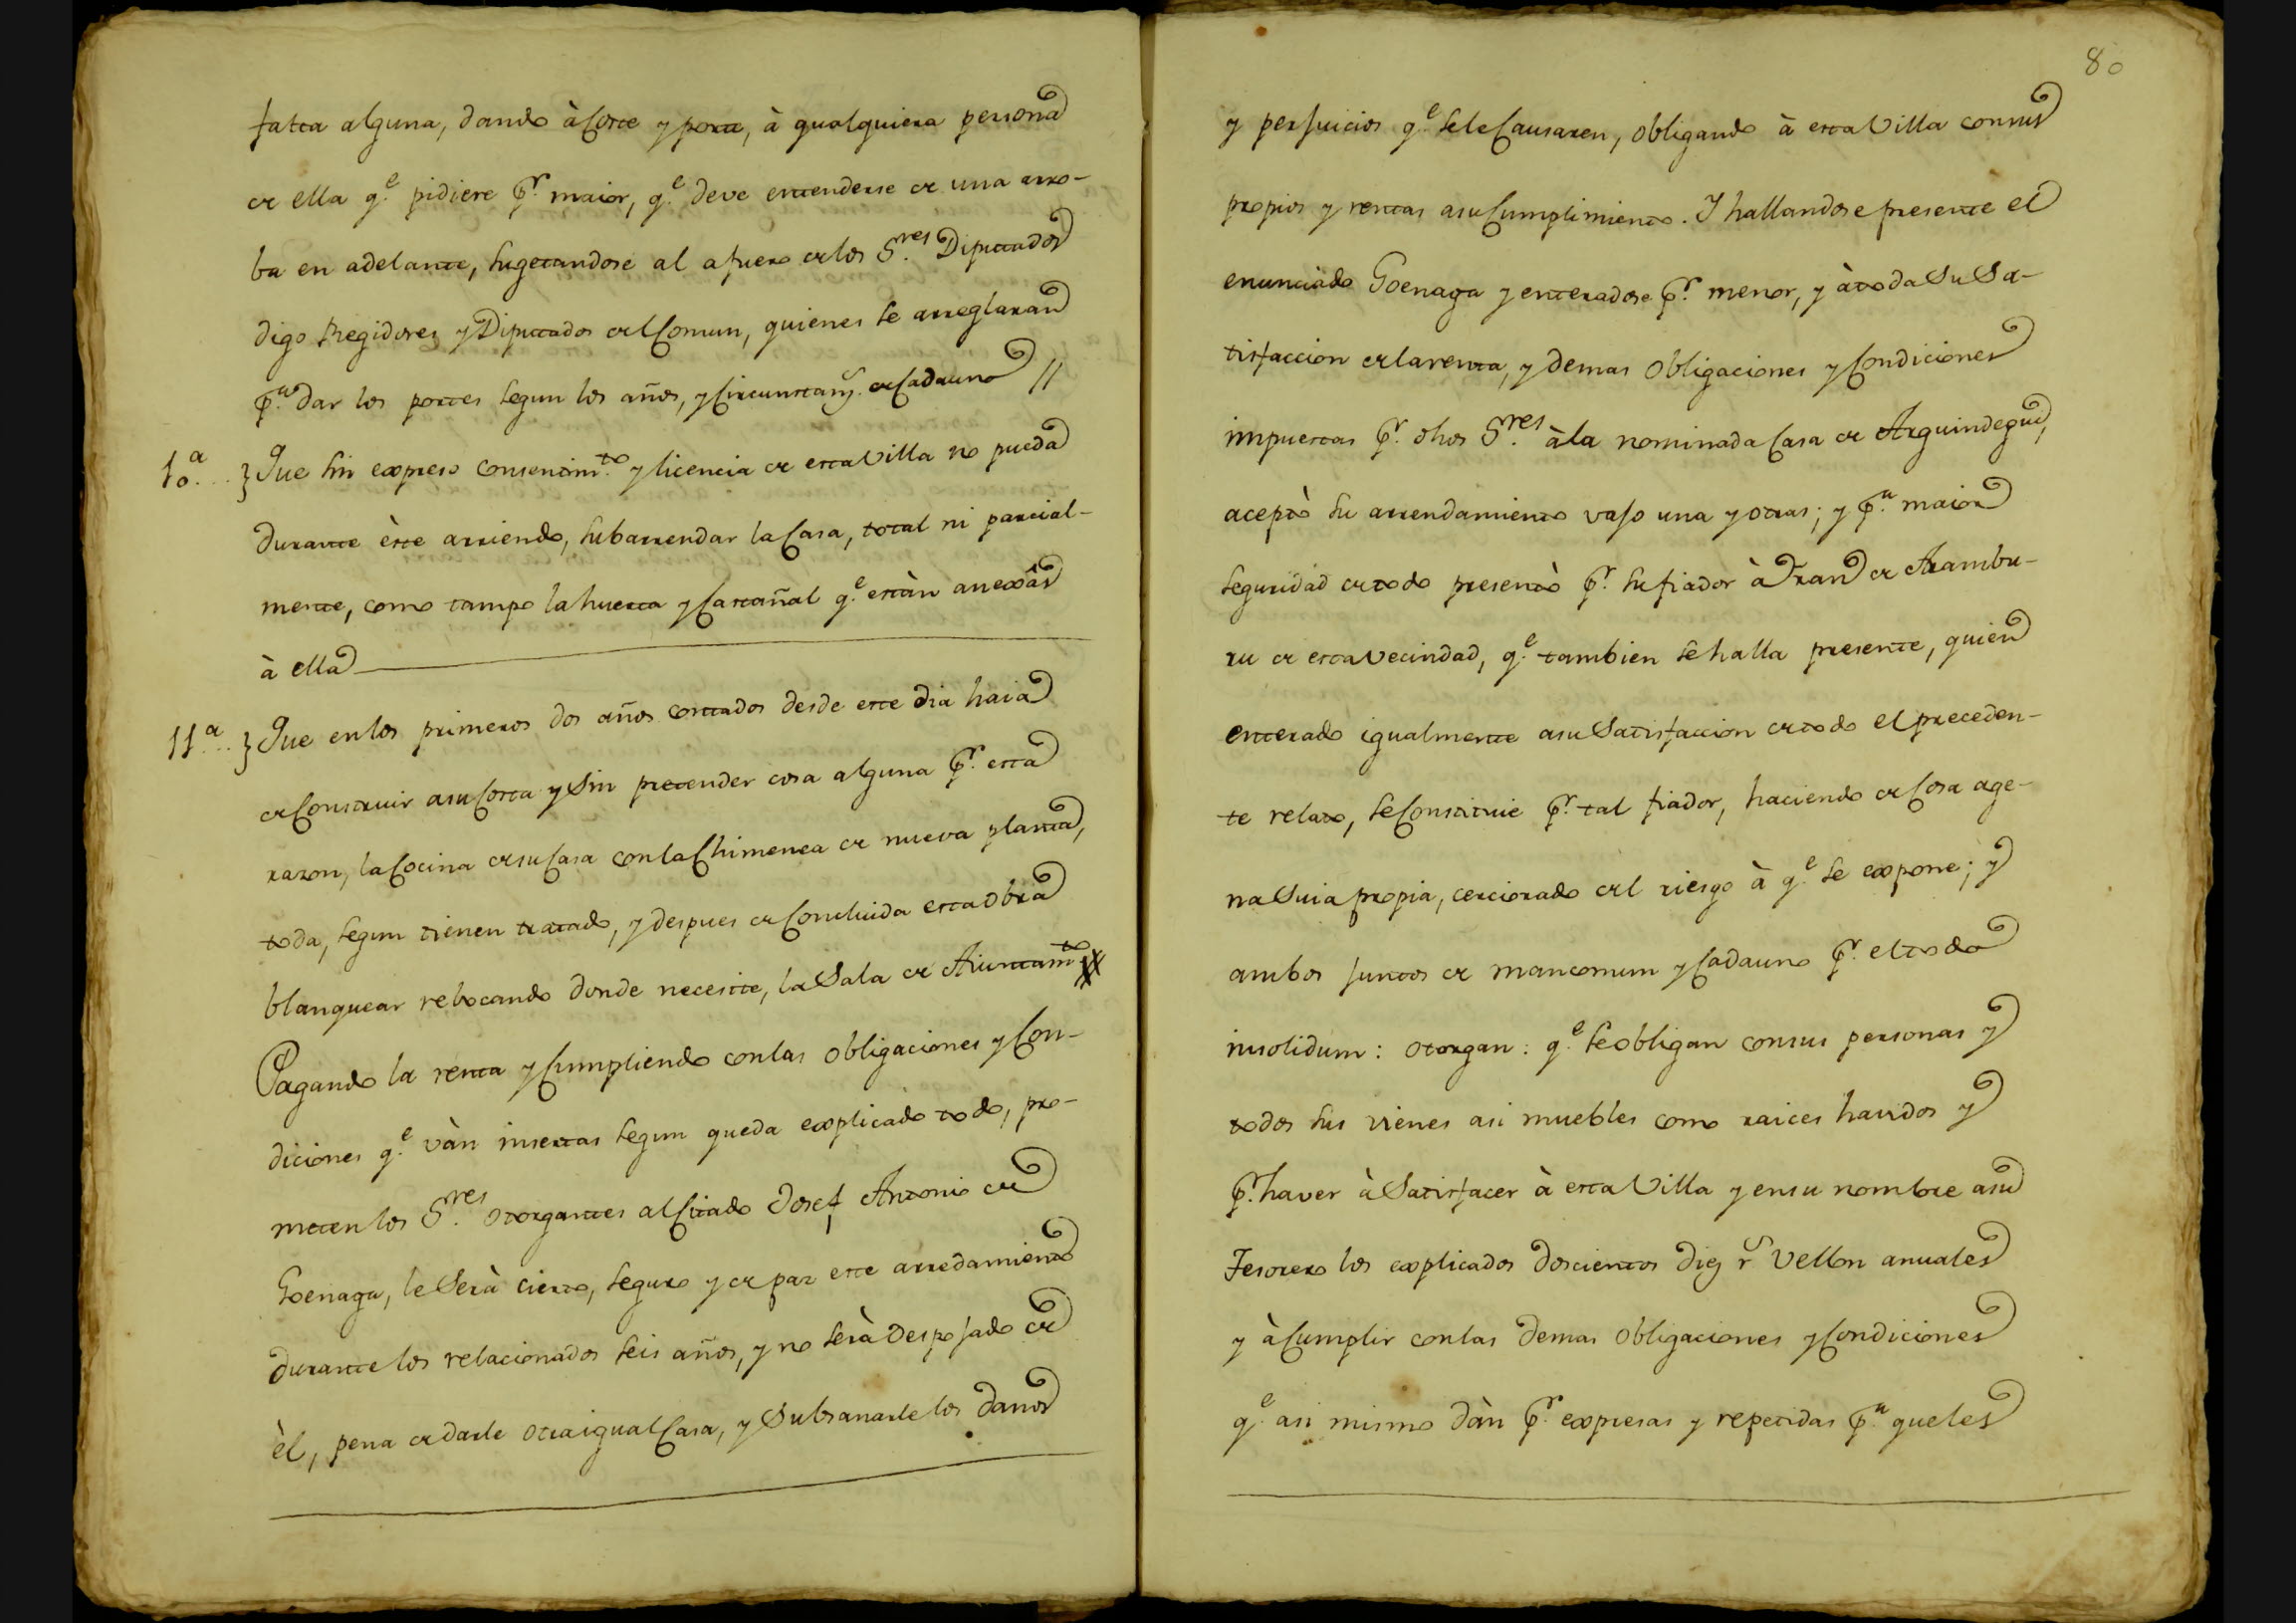 falta alguna, dando à corte y porte, à qualquiera persona
de ella q.e pidiere p.r maior, q.e deve entenderse de una arro-
ba en adelante, sugetandose al afuero de los S.res Diputados
digo Regidores y Diputados del Comun, quienes se arreglaran
p.a dar los portes segun los años, y circunstan.s de cada uno //
10.a.. } Que sin expreso consentim.to y licencia de esta Villa no pueda
durante èste arriendo, subarrendar la Casa, total ni parcial-
mente, como tampo la huerta y Castañal q.e estàn anexâs
à ella
11.a.. } Que en los primeros dos años contados desde este dia haia
de Construir asu Costa y Sin pretender cosa alguna p.r esta
razon, la Cocina de su Casa con la Chimenea de nueva planta,
toda, segun tienen tratado, y despues de Concluida esta obra
blanquear rebocando donde necesite, la Sala de Aiuntam.to
Pagando la renta y Cumpliendo con las obligaciones y Con-
diciones q.e vàn insertas segun queda explicado todo, pro-
meten los S.res otorgantes al Citado Josef Antonio de
Goenaga, le Serà cierto, seguro y de paz este arredamiento
durante los relacionados seis años, y no serà Despojado de
èl, pena de darle otra igual Casa, y Subsanarle los danos
80
y perjuicios q.e se le Causaren, obligando à esta Villa con sus
propios y rentas asu Cumplimiento. I hallandose presente el
enunciado Goenaga y enteradose p.r menor, y à toda Su Sa-
tisfaccion de la renta, y demas obligaciones y Condiciones
impuestas p.r dhos S.res à la nominada Casa de Arguindegui,
aceptò su arrendamiento vajo una y otras; y p.a maior
seguridad de todo presentò p.r su fiador à Fran de Arambu-
ru de esta vecindad, q.e tambien se halla presente, quien
enterado igualmente asu Satisfaccion de todo el preceden-
te relato, se Constituie p.r tal fiador, haciendo de Cosa age-
na Suia propia, cerciorado del riesgo à q.e se expone; y
ambos juntos de mancomun y Cada uno p.r el todo
insolidum: otorgan: q.e se obligan con sus personas y
todos sus vienes asi muebles como raices havidos y
p.r haver à Satisfacer à esta Villa y en su nombre asu
Tesorero los explicados doscientos diez r.s Vellon anuales
y à Cumplir con las demas obligaciones y Condiciones
q.e asi mismo dàn p.r expresas y repetidas p.a que les